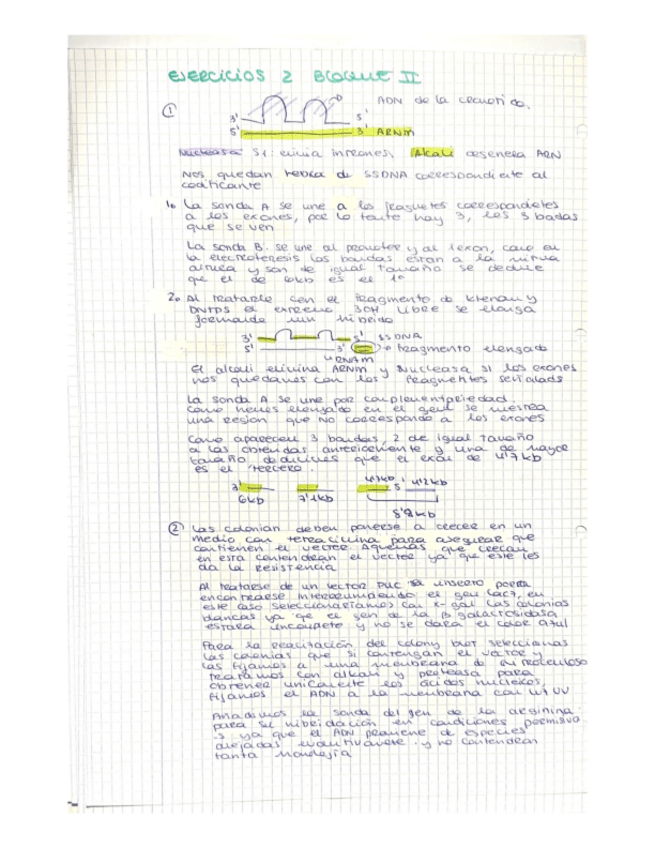 EJERCICIOS 2 BLOQUE II
① ADN de la levadura.
3' 5'
5' 3' ARNm
Nucleasa S1: elimina intrones, Alcali degenera ARN
Nos quedan hebra de SSDNA correspondiente al
codificante
1. La sonda A se une a los fragmetos correspondietes
a los exones, por lo tanto hay 3, las 3 badas
que se ven
La sonda B. se une al promotor y al 1 exon, como en
la electroforesis las bandas estan a la misma
altura y son de igual tamaño se deduce
que el de 6kb es el 1º
2. Al tratarle con el fragmento de Klenow y
DNTPS el extremo 3'OH libre se elonga
formando un hibrido
3' 5' SSDNA
5' 3' → fragmento elongado
ARNm
El alcali elimina ARNm y Nucleasa S1 los exones
nos quedamos con los fragmentos señalads
La sonda A se une por complementariedad.
Como hemos elongado en el gen se muestra
una region que no corresponde a los exones
Como aparecen 3 bandas, 2 de igual tamaño
a las obtenidas anteriormente y una de mayor
tamaño deducimos que el exon de 4'7kb
es el tercero.
3' 4'7kb 5' 4'2kb
6kb 7'1kb
8'9kb
② Las colonias deben ponerse a crecer en un
medio con tetraciclina para asegurar que
contienen el vector. Aquellas que crezcan
en esta contendran el vector ya que este les
da la resistencia
Al tratarse de un vector PUC el inserto podra
encontrarse interrumpiendo el gen lacZ, en
este caso seleccionariamos con X-gal las colonias
blancas ya que el gen de la β galactosidasa
estara incompleto y no se dara el color azul
Para la realización del colony blot seleccionas
las colonias que si contengan el vector y
las fijamos a una membrana de nitrocelulosa
tratamos con alkali y proteasa para
obtener unicamente los ácidos nucleicos,
fijamos el ADN a la membrana con luz UV
Añadimos la sonda del gen de la arginina
para su hibridación en condiciones permisiva
s ya que el ADN proviene de especies
alejadas evolutivamente y no contendran
tanta homología